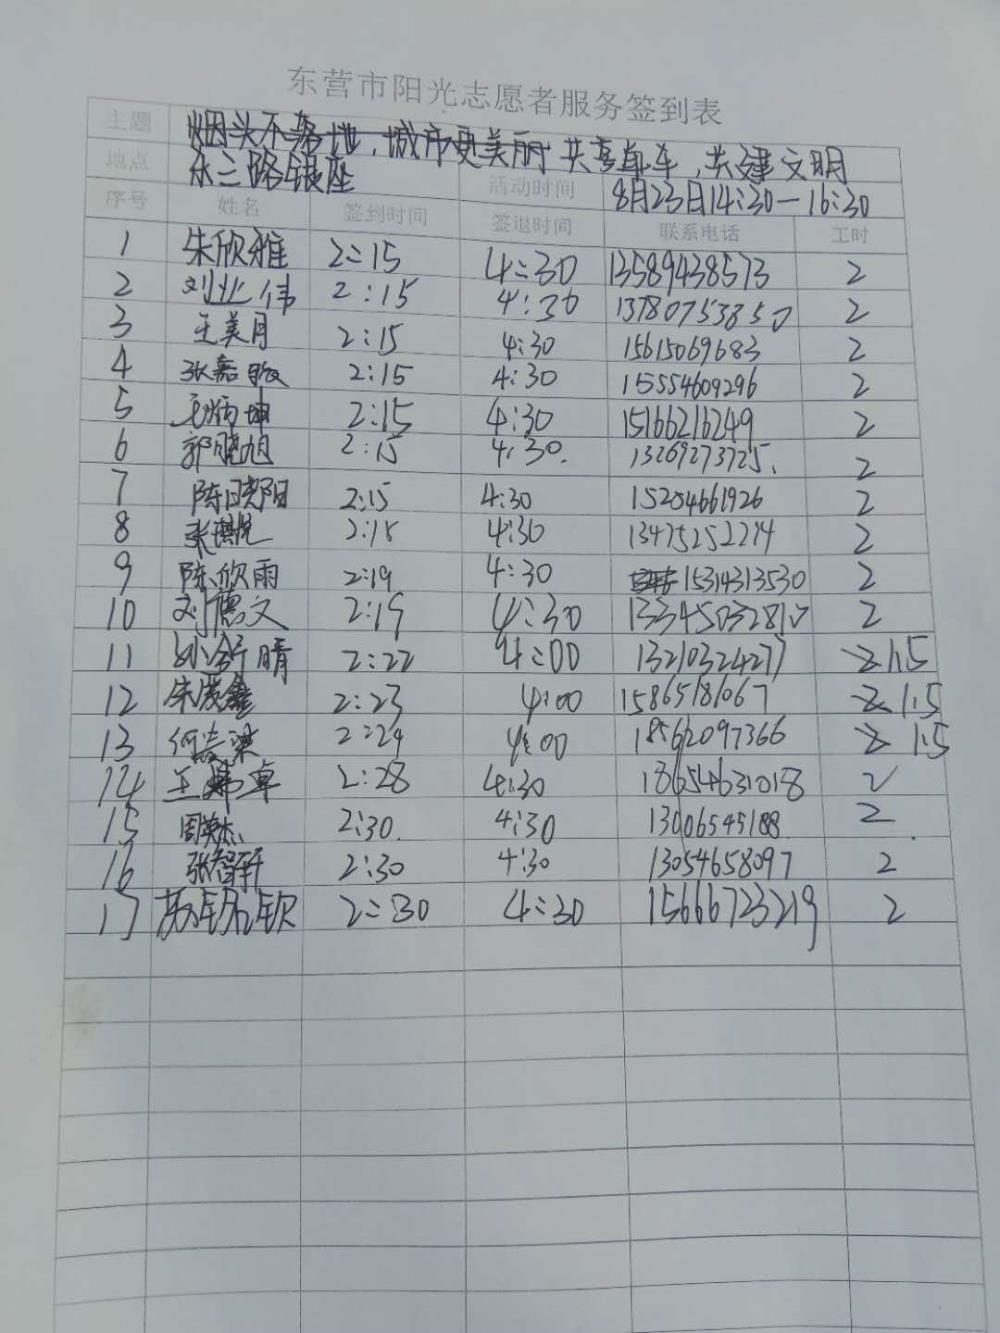 东营市阳光志愿者服务签到表
主题 烟头不落地，城市更美丽 共享单车，共建文明
地点 东三路银座 活动时间 8月23日14:30—16:30
序号 姓名 签到时间 签退时间 联系电话 工时
1 朱欣雅 2:15 4:30 13589438573 2
2 刘业伟 2:15 4:30 13780753850 2
3 王美月 2:15 4:30 15615069683 2
4 张嘉 2:15 4:30 15554609296 2
5 坤 2:15 4:30 15166216249 2
6 郭晓旭 2:15 4:30. 13269273725. 2
7 陈晓阳 2:15 4:30 15254661926 2
8 张 2:18 4:30 13475252274 2
9 陈欣雨 2:19 4:30 15314313530 2
10 刘德文 2:19 4:30 13345032810 2
11 孙舒晴 2:22 4:00 13210324277 2 1.5
12 朱茂鑫 2:23 4:00 15865181067 2 1.5
13 何志梁 2:24 4:00 18562097366 2 1.5
14 王卓 2:28 4:30 18654631018 2
15 周英杰 2:30. 4:30 13006545188. 2.
16 张智轩 2:30 4:30 13054658097 2
17 2:30 4:30 15666723219 2